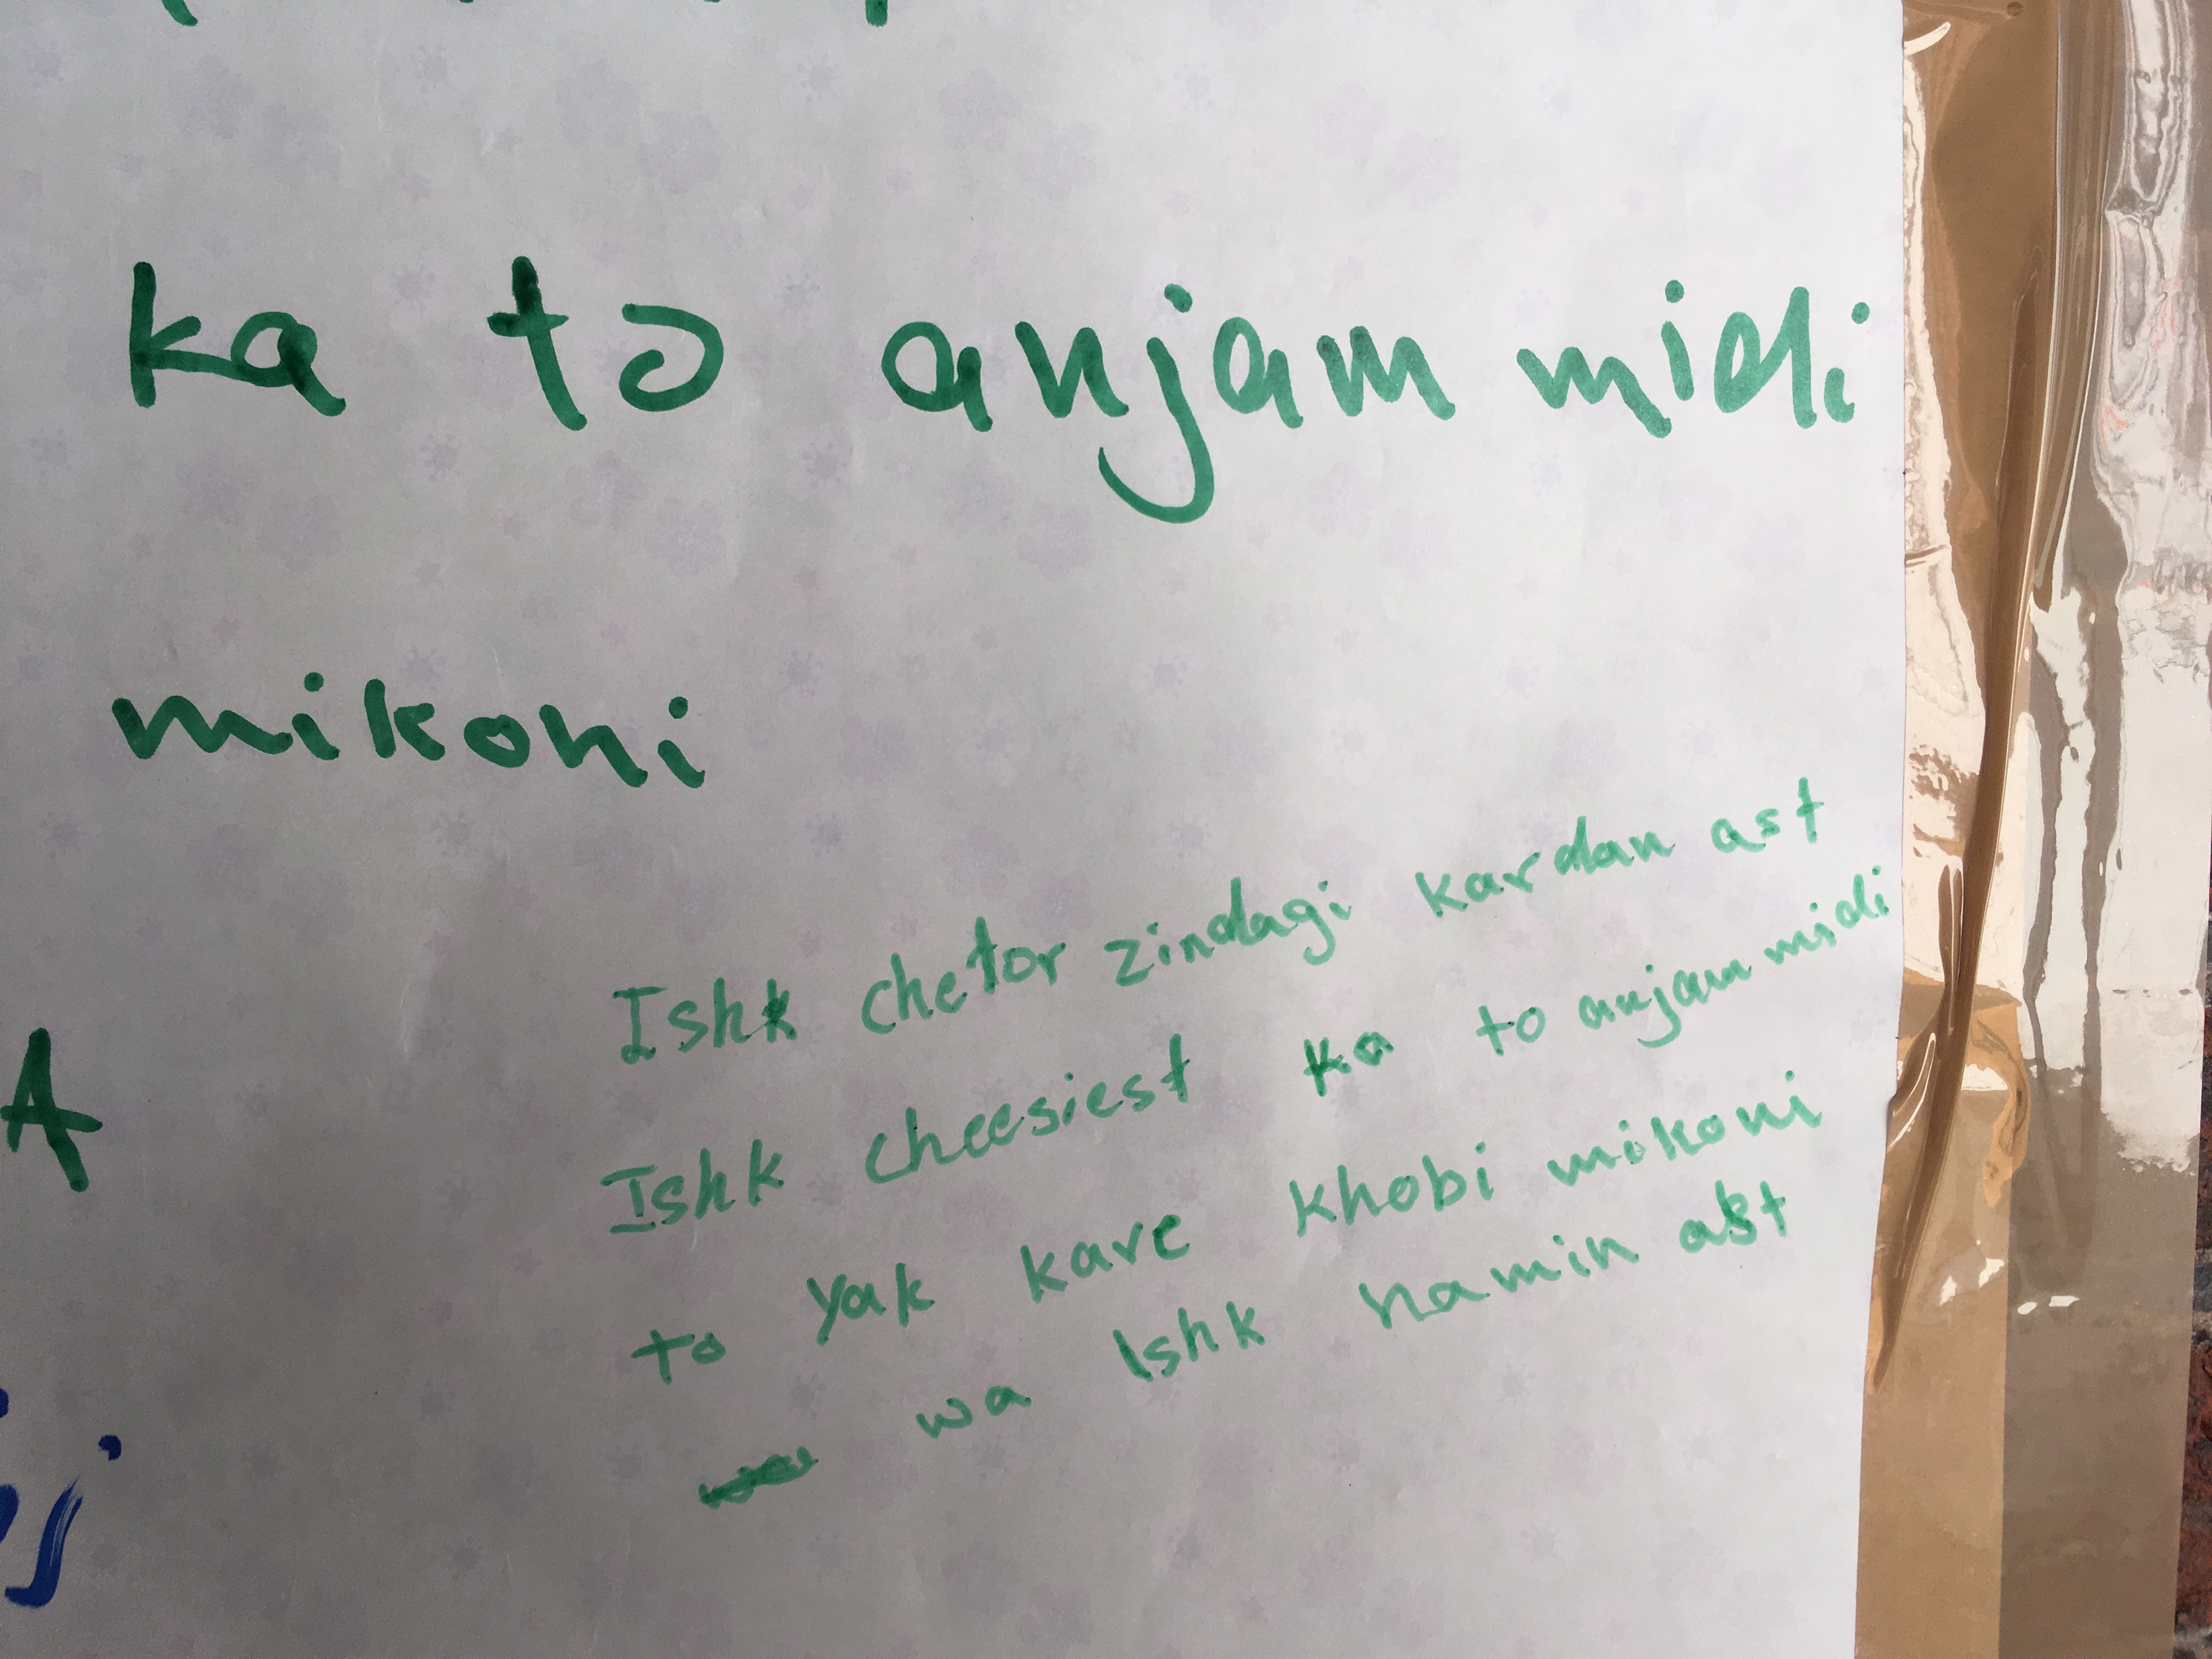 ka to anjam midi
mikoni
Ishk chetor zindagi kardan ast
Ishk cheesiest ka to anjam midi
to yak kare khobi mikoni
wa Ishk hamin ast
A